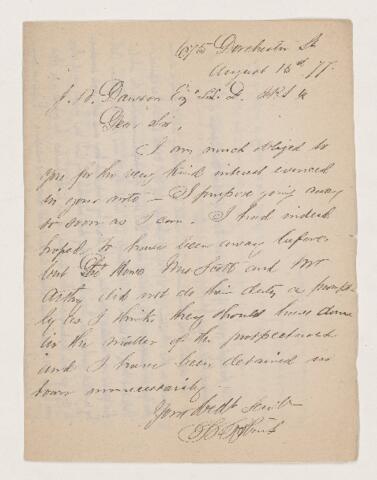 675 Dorchester St
August 18th 77.
J. W. Dawson Esq LL. D. F.R.S &
Dear Sir,
I am much obliged to
you for the very kind interest evinced
in your note — I purpose going away
so soon as I can. I had indeed
hoped to have been away before
but Drs Howe Mrs Scott and Mr
did not do their duty as prompt-
ly as I think they should have done
in the matter of the prospectuses
and I have been detained in
town unnecessarily.
Your obedt Servt